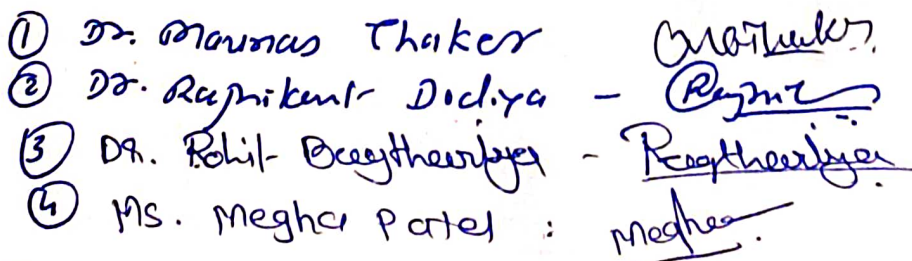 ① Dr. Maunas Thaker
② Dr. Rajnikant Dodiya -
③ Dr. Rohit Bagthariya -
④ Ms. Megha Patel : Megha